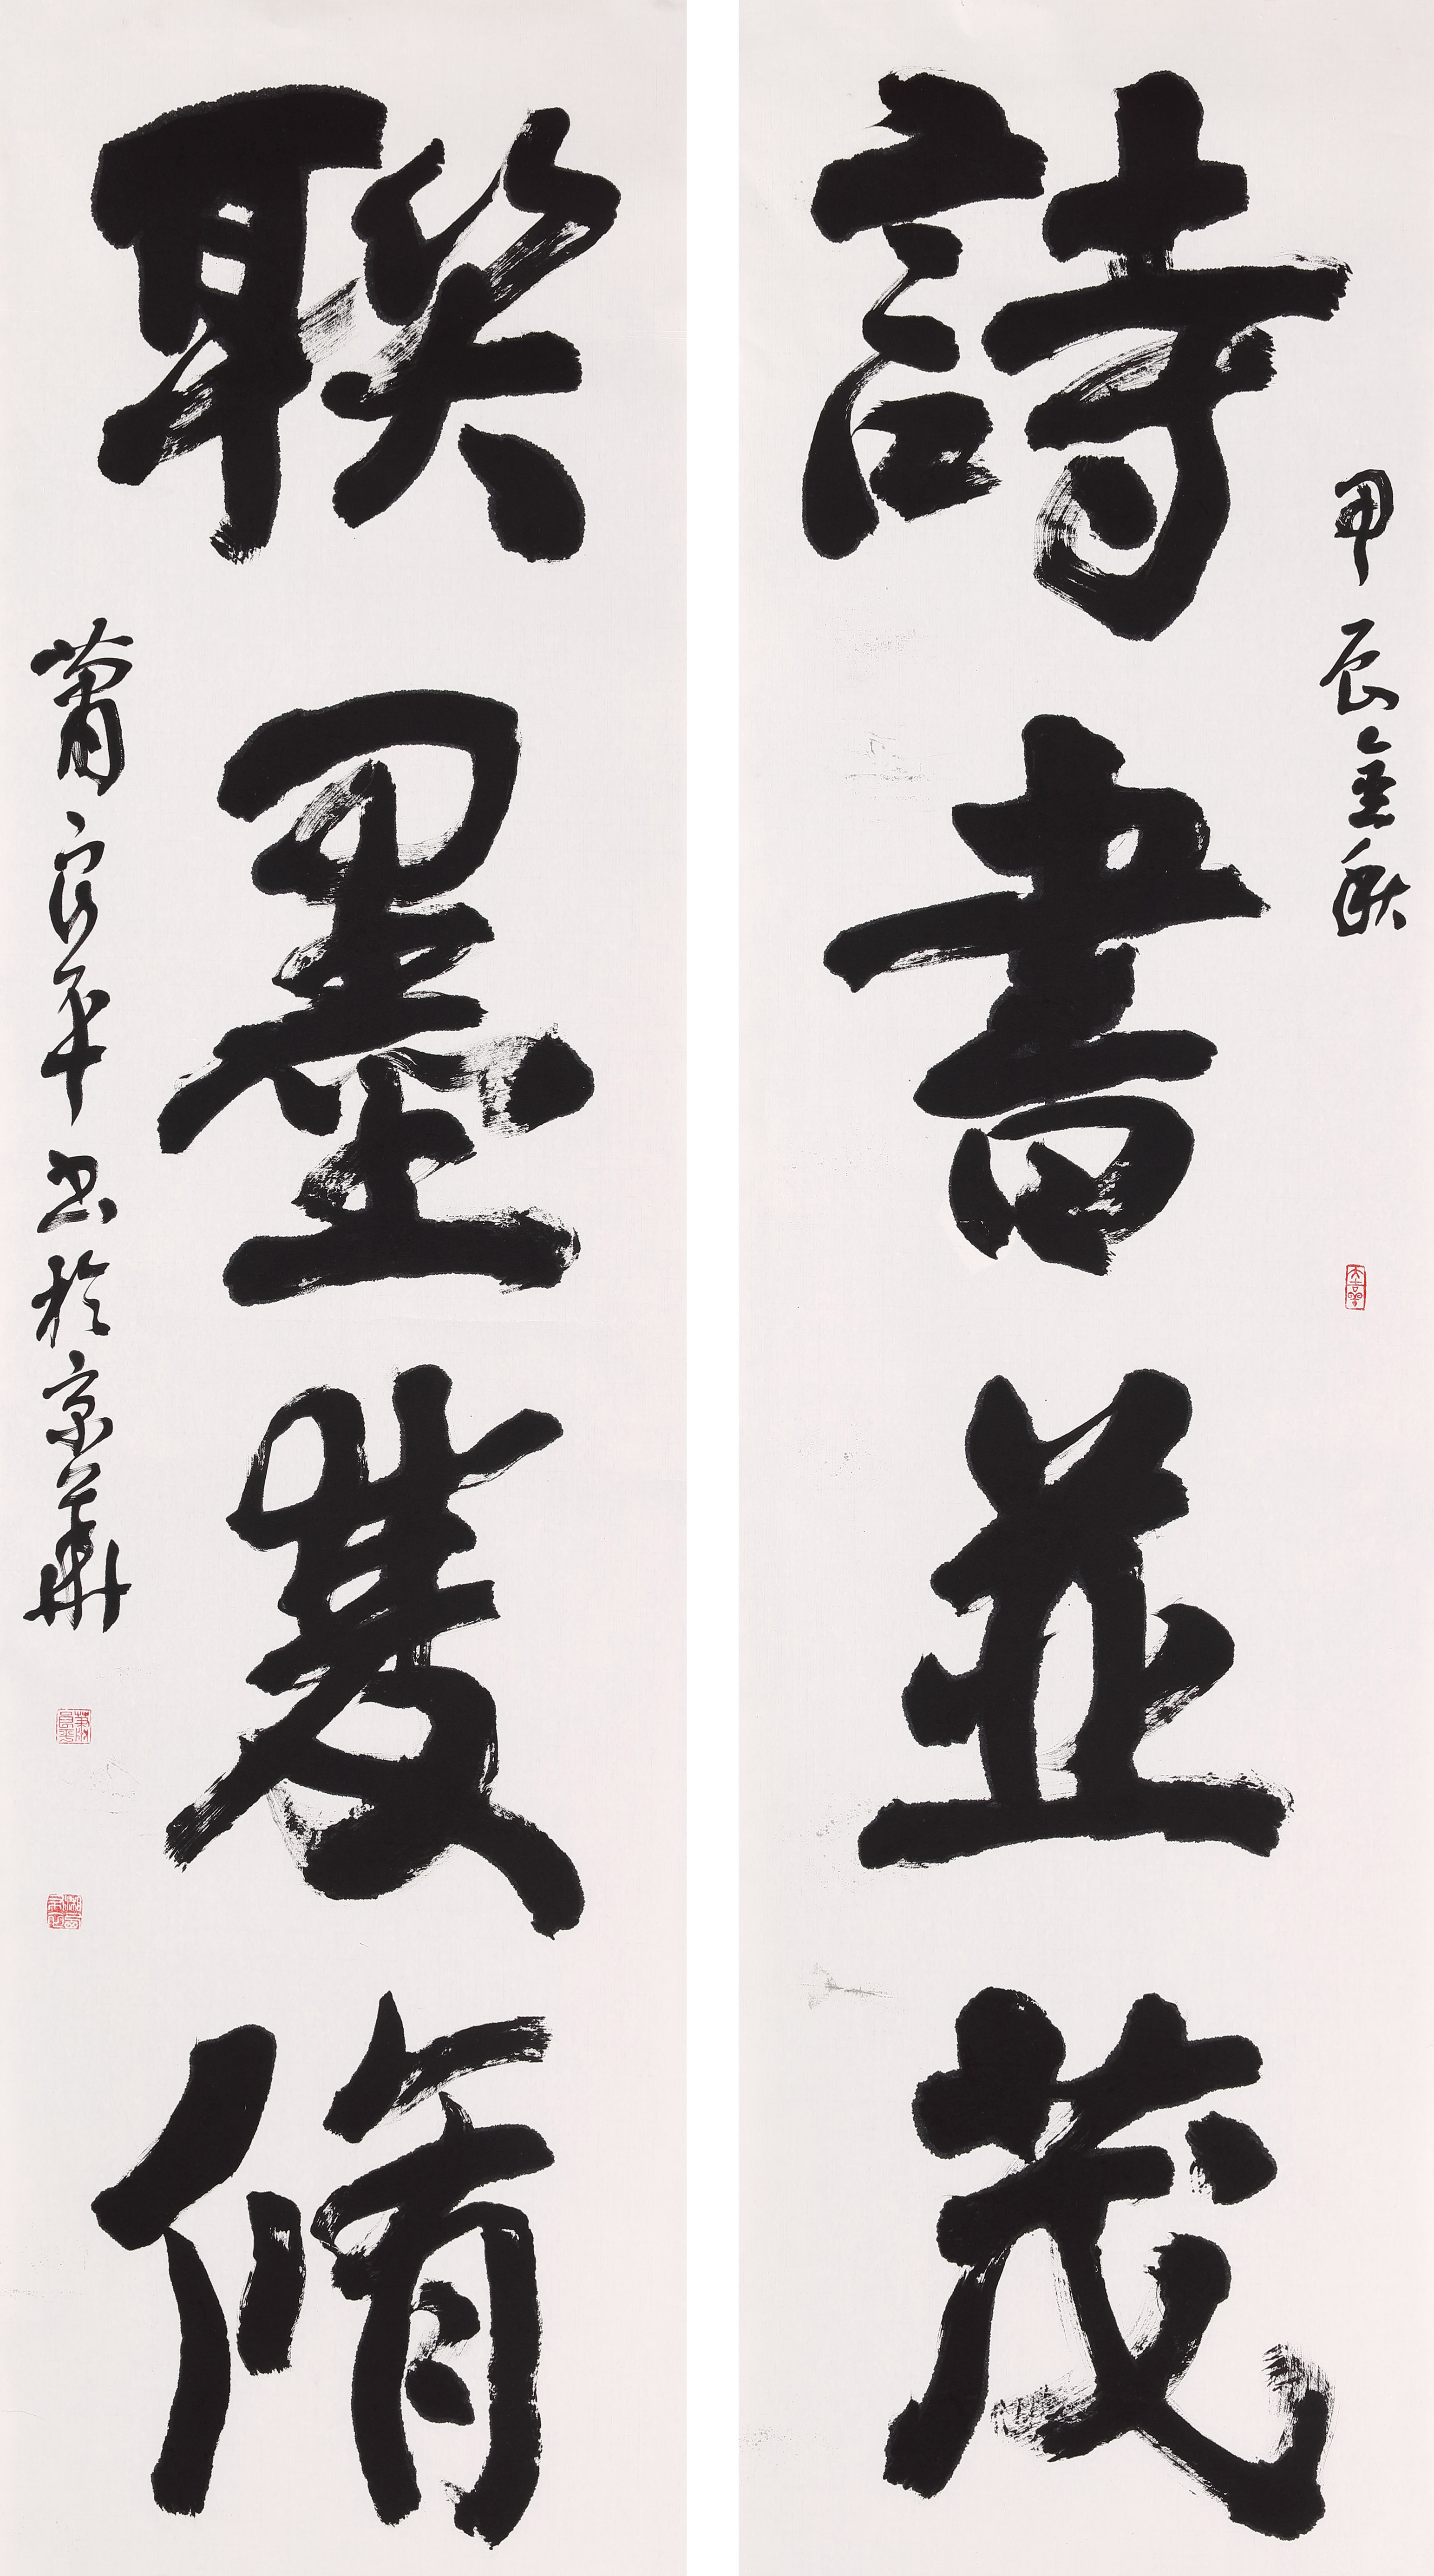 甲辰金秋
詩書並茂
聯墨雙脩
蕭良平书於京華